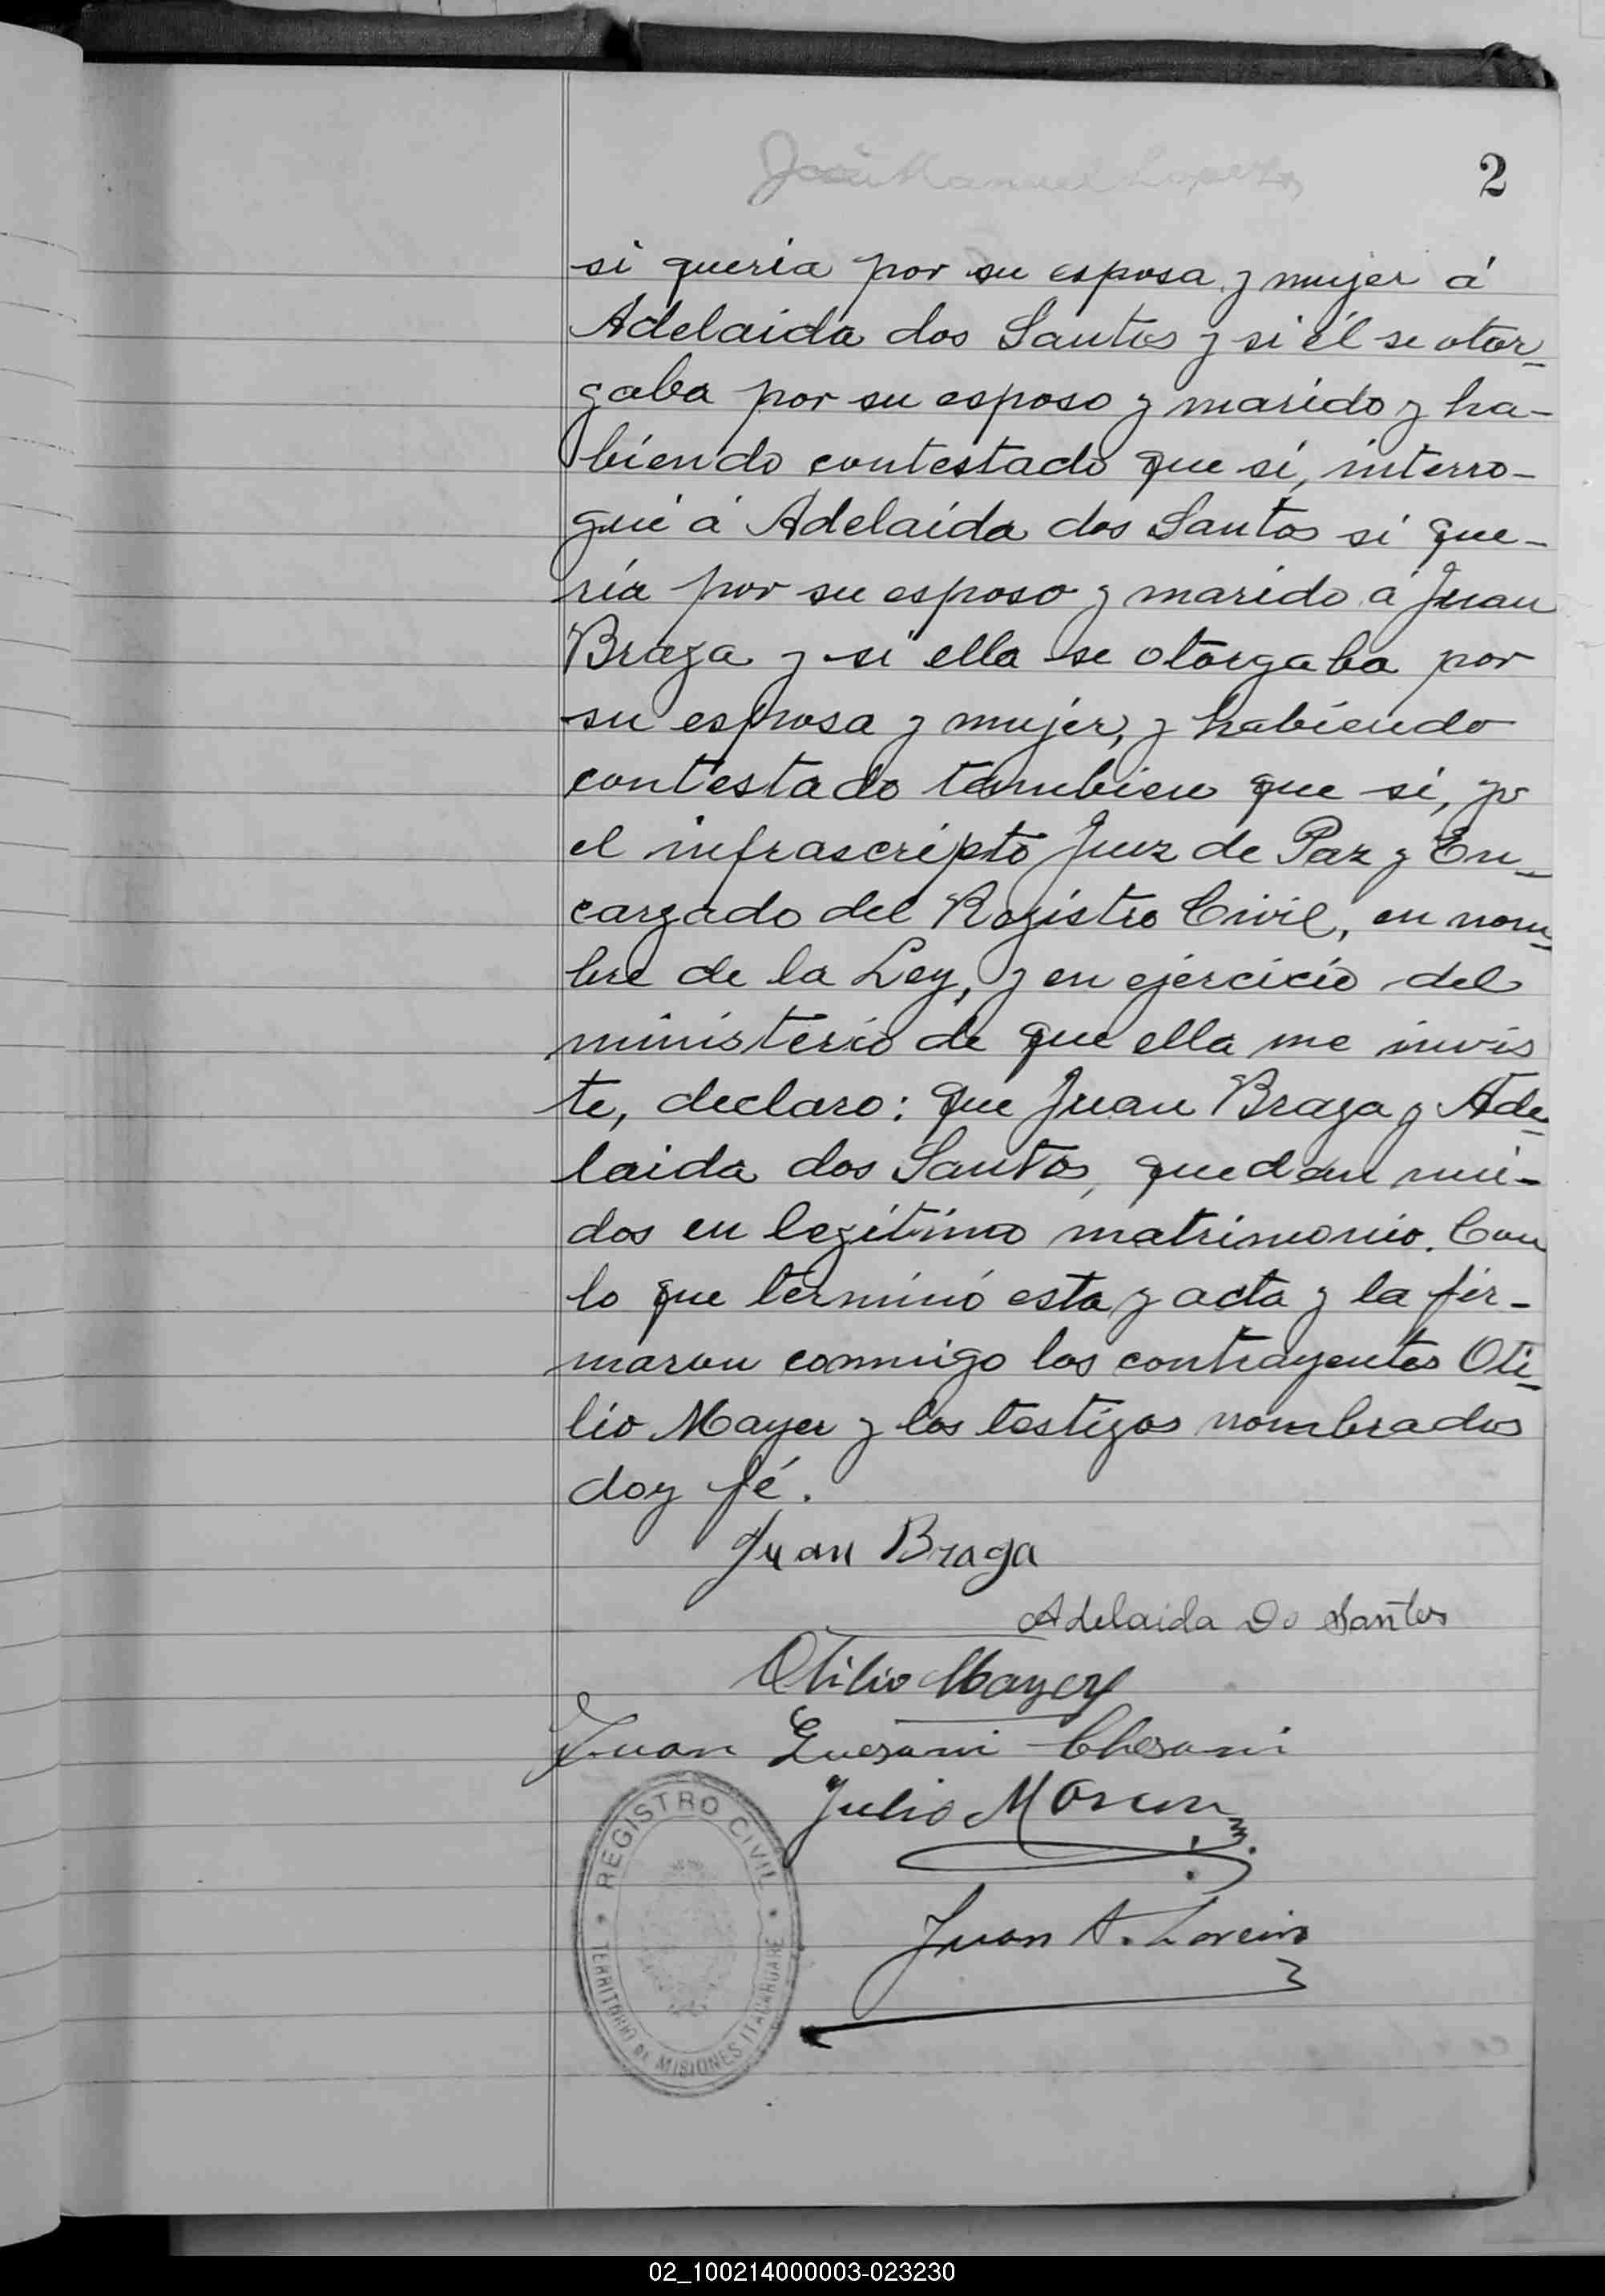 José Manuel Lopez
2
si queria por su esposa y mujer á
Adelaida dos Santos y si él se otor-
gaba por su esposo y marido y ha-
biendo contestado que si, interro-
gué á Adelaida dos Santos si que-
ria por su esposo y marido á Juan
Braga y si ella se otorgaba por
su esposa y mujer, y habiendo
contestado tambien que si, yo
el infrascripto Juez de Paz y En-
cargado del Registro Civil, en nom-
bre de la Ley, y en ejercicio del
ministerio de que ella me invis
te, declaro: que Juan Braga y Ade-
laida dos Santos, quedan uni-
dos en legitimo matrimonio. Con
lo que terminó esta y acta y la fir-
maron conmigo los contrayentes Oti-
lio Mayer y los testigos nombrados
doy fé.
Juan Braga
Adelaida Do Santos
Otilio Mayer
Juan
Julio
Juan A.
REGISTRO CIVIL
TERRITORIO DE MISIONES ITACARUARE
02_100214000003-023230